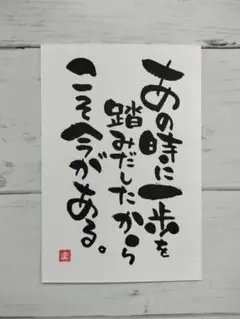 あの時に一歩を
踏みだしたから
こそ今がある。